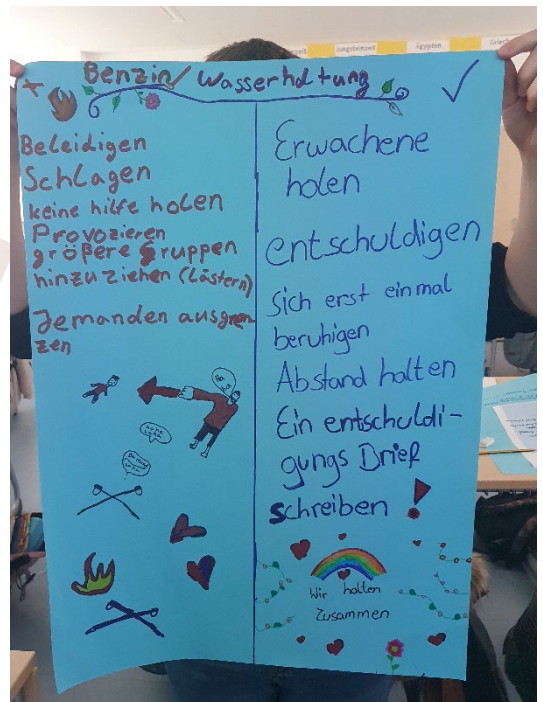 Jungsteinzeit
Ägypten
Benzin/Wasserhaltung
Beleidigen
Schlagen
keine hilfe holen
Provozieren
größere gruppen
hinzuziehen (Lästern)
Jemanden ausgren-
zen
Erwachene
holen
entschuldigen
Sich erst einmal
beruhigen
Abstand halten
Ein entschuldi-
gungs Brief
schreiben !
Wir halten
Zusammen